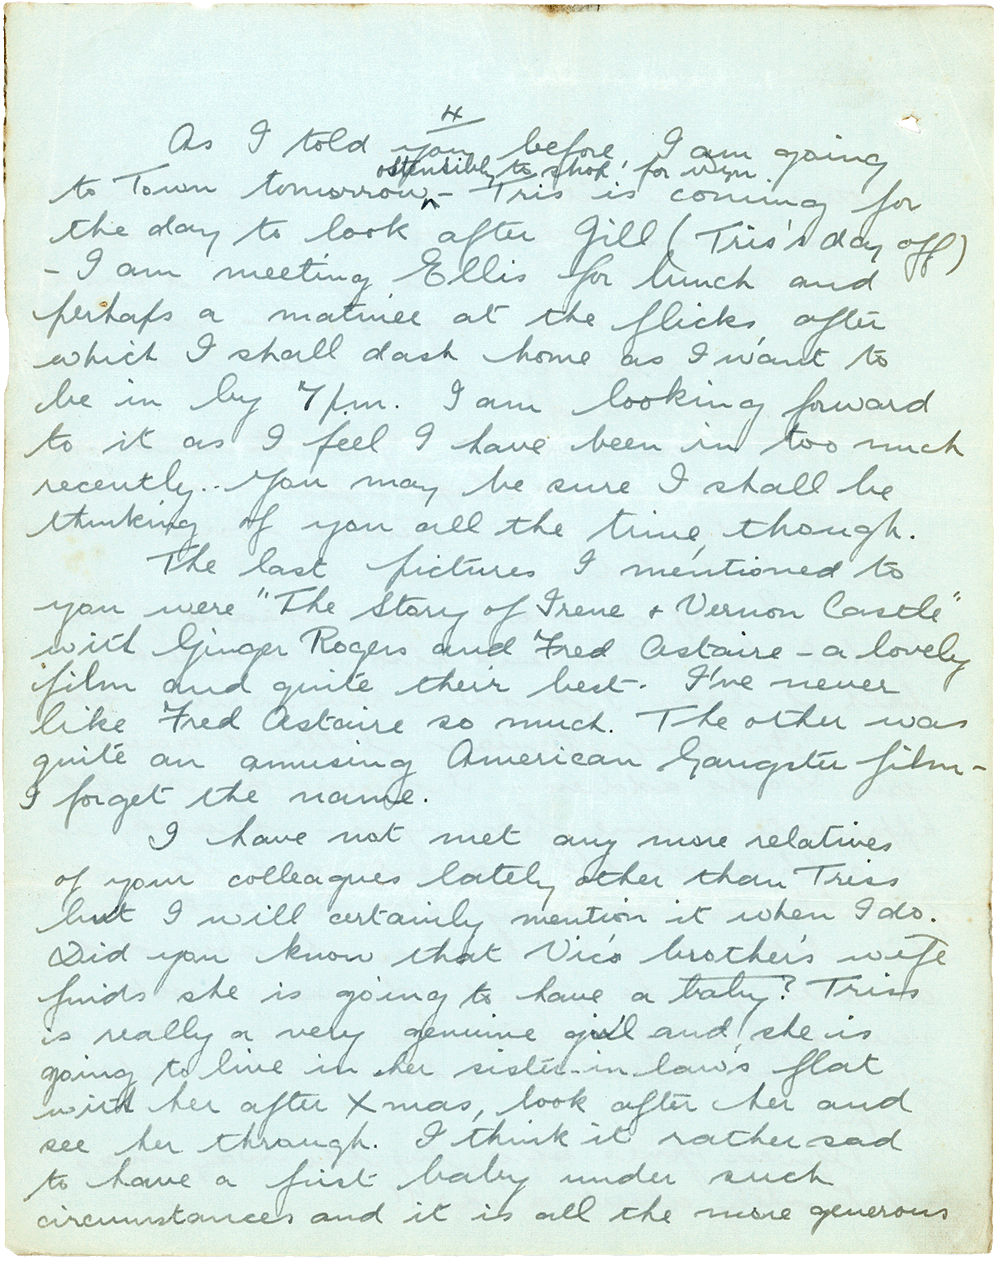 4
As I told you before, I am going
ostensibly to shop, for wyn.
to Town tomorrow, - Tris is coming for
the day to look after Jill (Tris's day off)
- I am meeting Ellis for lunch and
perhaps a matinee at the flicks, after
which I shall dash home as I want to
be in by 7 p.m. I am looking forward
to it as I feel I have been in too much
recently.. You may be sure I shall be
thinking of you all the time, though.
The last pictures I mentioned to
you were "The Story of Irene & Vernon Castle"
with Ginger Rogers and Fred Astaire - a lovely
film and quite their best. I've never
like Fred Astaire so much. The other was
quite an amusing American Gangster film -
I forget the name.
I have not met any more relatives
of your colleagues lately other than Triss
but I will certainly mention it when I do.
Did you know that Vic's brother's wife
finds she is going to have a baby? Triss
is really a very genuine girl and she is
going to live in her sister-in-law's flat
with her after Xmas, look after her and
see her through. I think it rather sad
to have a first baby under such
circumstances and it is all the more generous